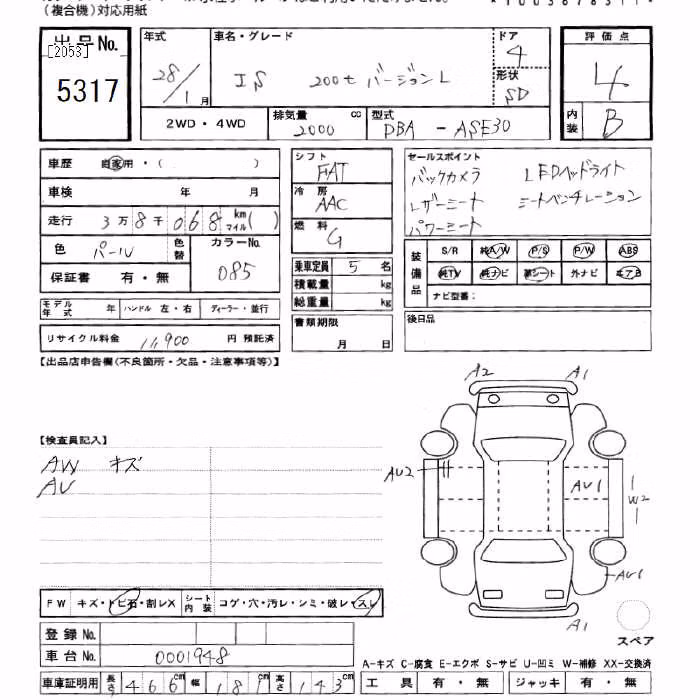 (複合機)対応用紙
出品No.
[2053]
5317
年式
28/1月
車名・グレード
IS 200t バージョンL
ドア
4
形状
SD
評価点
4
内装
B
2WD・4WD
排気量
2000 cc
型式
DBA - ASE30
車歴 自家用・( )
車検 年 月
走行 3万8千068 km マイル( )
色 パール 色替
カラーNo.
085
保証書 有・無
シフト
FAT
冷房
AAC
燃料
G
乗車定員 5名
積載量 kg
総重量 kg
書類期限
月 日
セールスポイント
バックカメラ LEDヘッドライト
レザーシート シートベンチレーション
パワーシート
装備品
S/R 純A/W P/S P/W ABS
純TV 純ナビ 革シート 外ナビ エアB
ナビ型番:
後日品
モデル年式 年 ハンドル 左・右 ディーラー・並行
リサイクル料金 11,900 円 預託済
【出品店申告欄(不良箇所・欠品・注意事項等)】
【検査員記入】
AW キズ
AU
A2
A1
AU2
AU1
W2
AU1
A1
スペア
FW キズ・トビ石・割レX シート内装 コゲ・穴・汚レ・シミ・破レ・スレ
登録No.
車台No. 0001948
A-キズ C-腐食 E-エクボ S-サビ U-凹ミ W-補修 XX-交換済
車庫証明用 長さ 466cm 幅 181cm 高さ 143cm
工具 有・無 ジャッキ 有・無